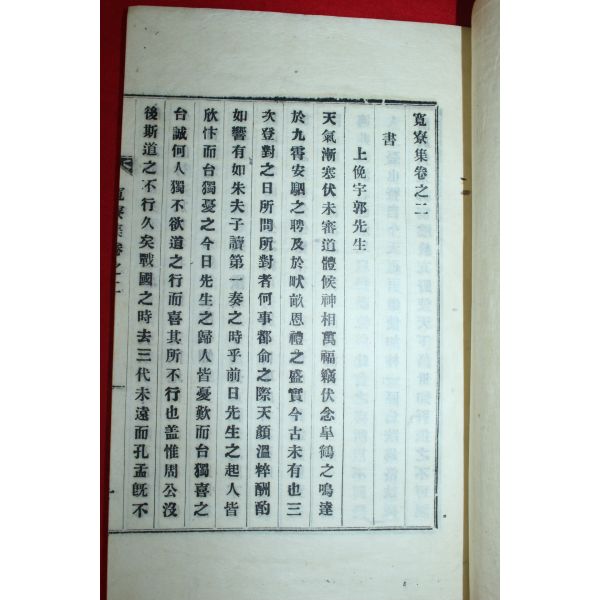 寬寮集卷之二
書
上俛宇郭先生
天氣漸寒伏未審道體候神相萬福竊伏念皐鶴之鳴達
於九霄安駟之聘及於畎畝恩禮之盛實今古未有也三
次登對之日所問所對者何事都俞之際天顔溫粹酬酌
如響有如朱夫子讀第一奏之時乎前日先生之起人皆
欣忭而台獨憂之今日先生之歸人皆憂歎而台獨喜之
台誠何人獨不欲道之行而喜其所不行也盖惟周公沒
後斯道之不行久矣戰國之時去三代未遠而孔孟旣不
寬寮集卷之二
一